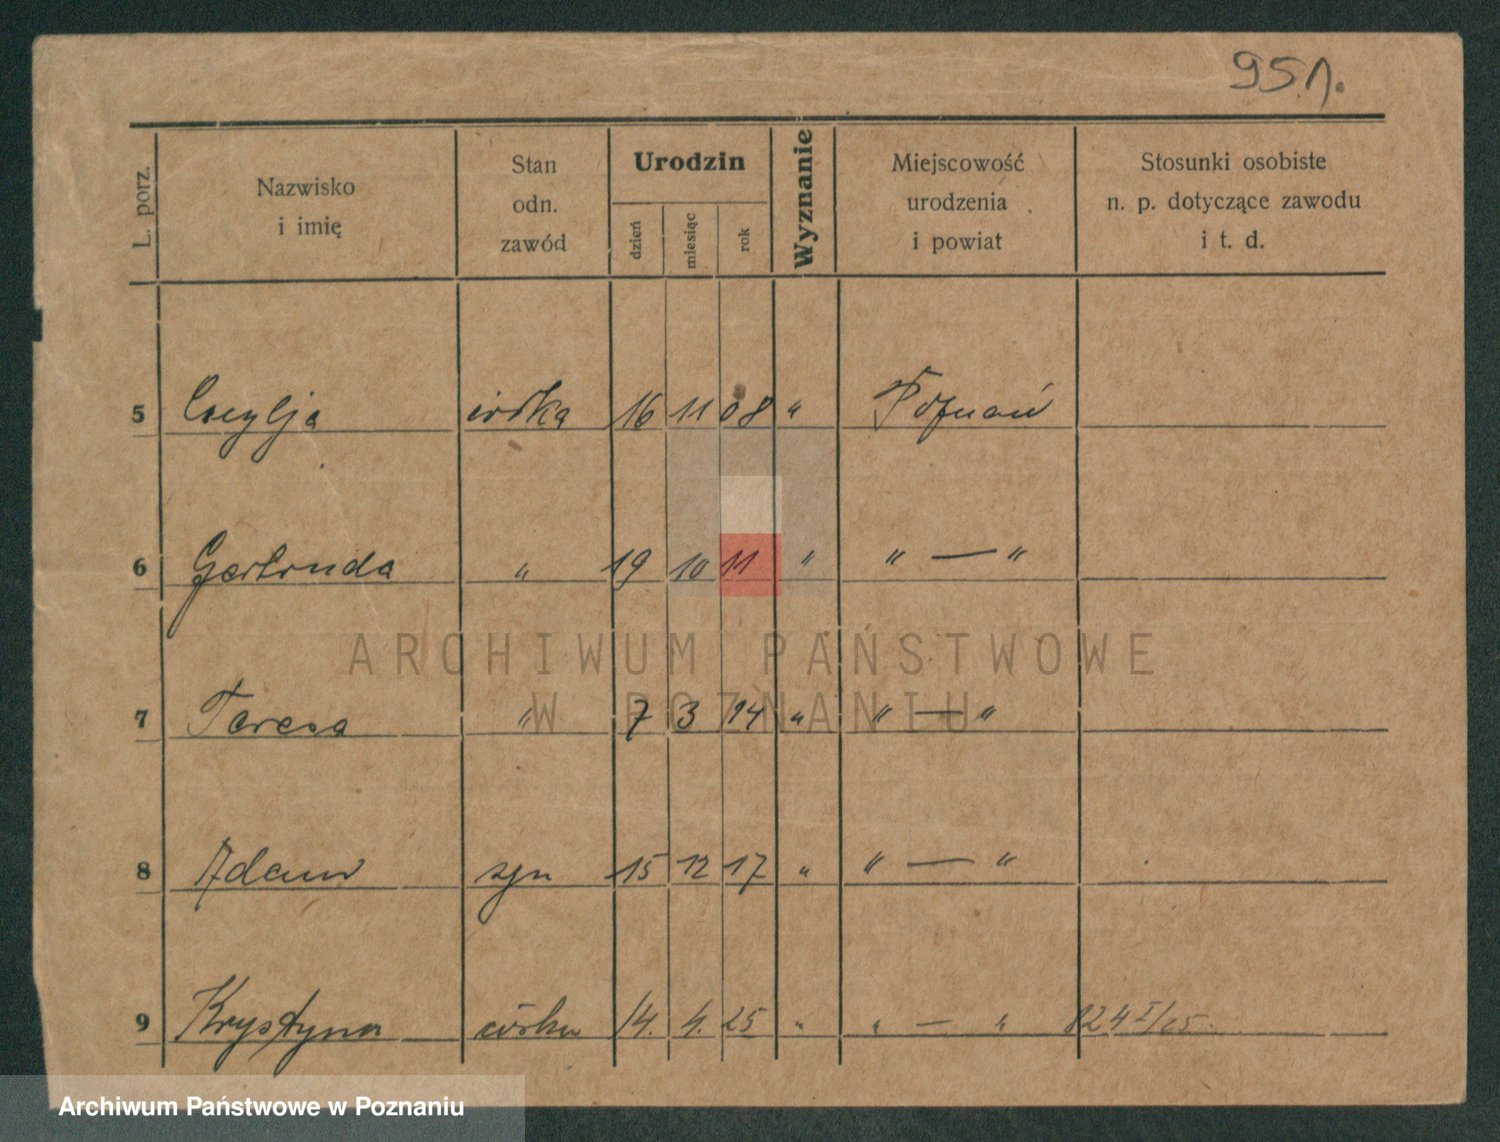 951.
L. porz.
Nazwisko
i imię
Stan
odn.
zawód
Urodzin
dzień
miesiąc
rok
Wyznanie
Miejscowość
urodzenia
i powiat
Stosunki osobiste
n. p. dotyczące zawodu
i t. d.
5 Cecylja córka 16 11 08 " Poznań
6 Gertruda " 19 10 11 " " — "
7 Teresa " 7 3 14 " " — "
8 Adam syn 15 12 17 " " — "
9 Krystyna córka 14. 4. 25 " " — " 824 I/25.
ARCHIWUM PAŃSTWOWE
W POZNANIU
Archiwum Państwowe w Poznaniu